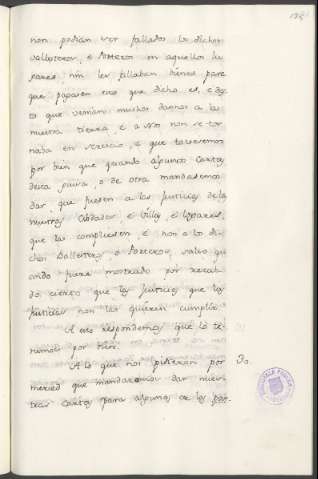 non podian ser fallados los dichos
Vallesteros, e Porteros en aquellos lu
gares, nin les fallaban bienes para
que pagasen esto que dicho es, e des
to que venian muchos dannos a la
nuestra tierra, e a Nos non se tor
naba en servicio, e que toviesemos
por bien que quando algunas Cartas
desta guisa, o de otra mandasemos
dar, que fuesen a las Justicias de las
nuestras Cibdades, e Villas, e Logares,
que las compliesen e non a los di
chos Ballesteros, o Porteros, salvo qu
ando fuere mostrado por recab
do cierto que las Justicias que las
Justicias non las quieren cumplir.
A esto respondemos que lo te-
nemos por bien.
A lo que nos pidieron por 30.
merced que mandaremos dar nues
tras Cartas para algunos de los